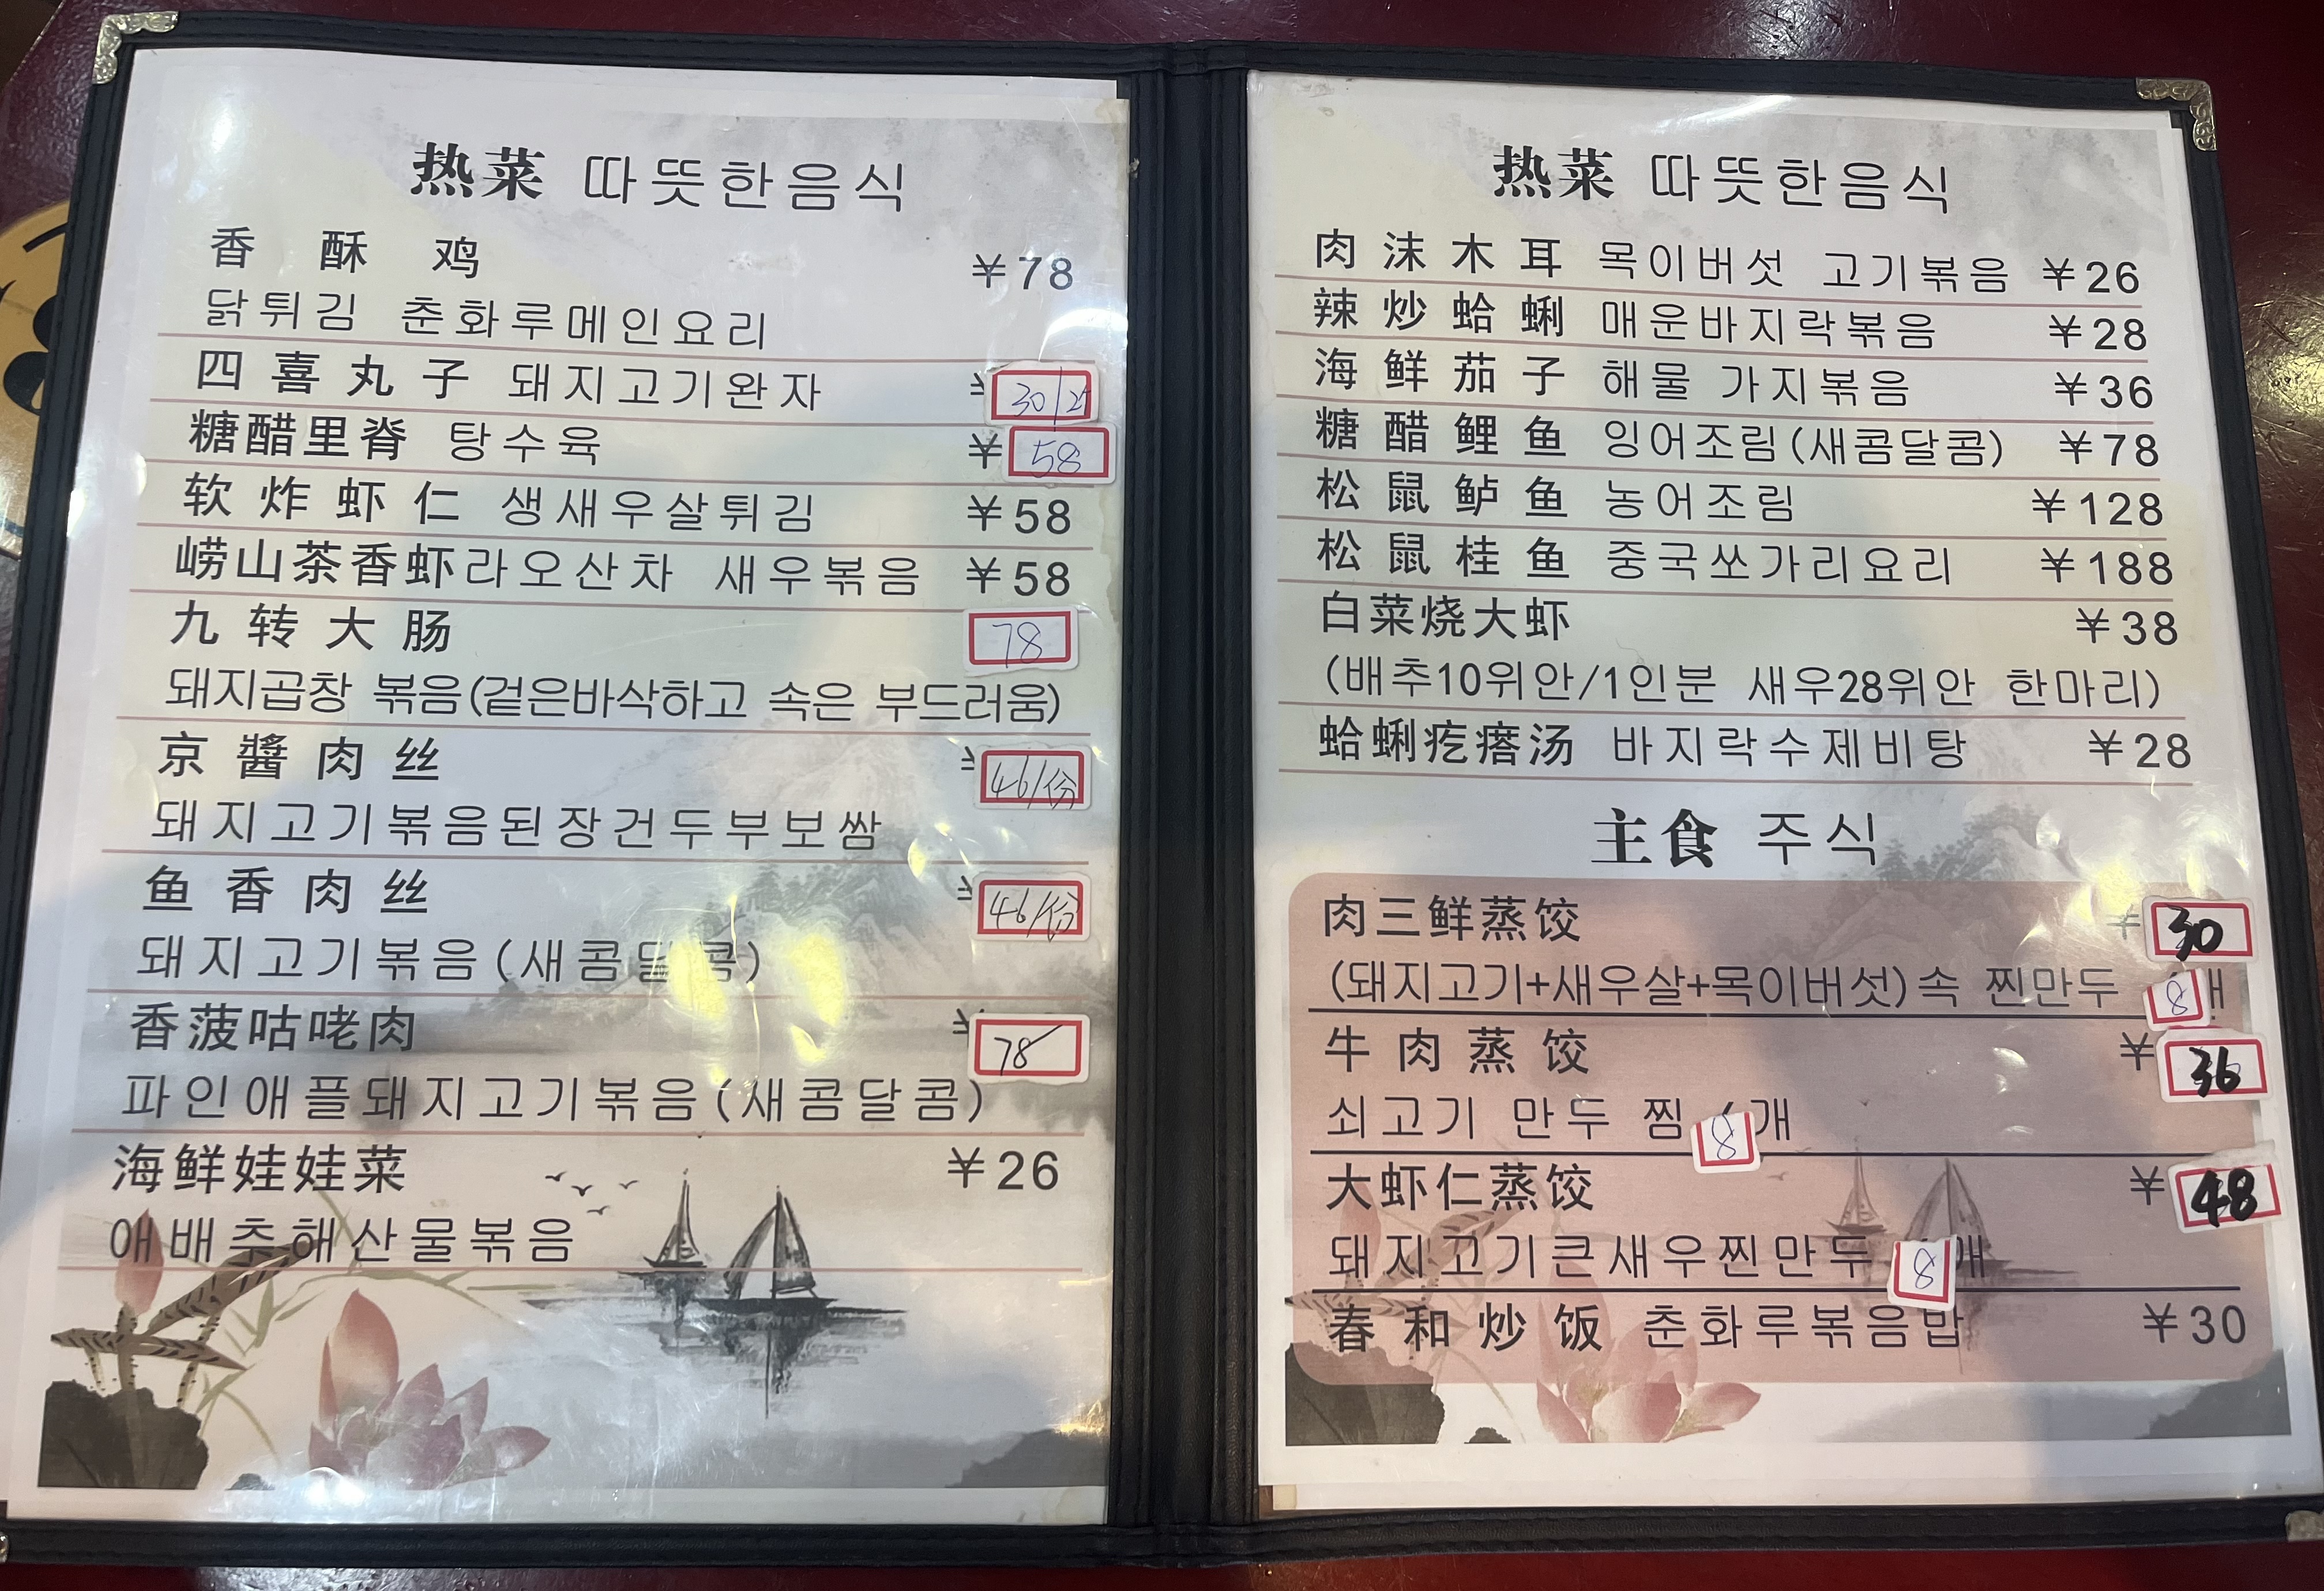 热菜 따뜻한음식
香酥鸡 ¥78
닭튀김 춘화루메인요리
四喜丸子 돼지고기완자 ¥ 30/2
糖醋里脊 탕수육 ¥ 58
软炸虾仁 생새우살튀김 ¥58
崂山茶香虾 라오산차 새우볶음 ¥58
九转大肠 78
돼지곱창 볶음(겉은바삭하고 속은 부드러움)
京醬肉丝 ¥ 46/份
돼지고기볶음된장건두부보쌈
鱼香肉丝 ¥ 46/份
돼지고기볶음(새콤달콤)
香菠咕咾肉 ¥ 78
파인애플돼지고기볶음(새콤달콤)
海鲜娃娃菜 ¥26
애배추해산물볶음
热菜 따뜻한음식
肉沫木耳 목이버섯 고기볶음 ¥26
辣炒蛤蜊 매운바지락볶음 ¥28
海鲜茄子 해물 가지볶음 ¥36
糖醋鲤鱼 잉어조림(새콤달콤) ¥78
松鼠鲈鱼 농어조림 ¥128
松鼠桂鱼 중국쏘가리요리 ¥188
白菜烧大虾 ¥38
(배추10위안/1인분 새우28위안 한마리)
蛤蜊疙瘩汤 바지락수제비탕 ¥28
主食 주식
肉三鲜蒸饺 ¥ 30
(돼지고기+새우살+목이버섯)속 찐만두 8개
牛肉蒸饺 ¥ 36
쇠고기 만두 찜 8개
大虾仁蒸饺 ¥ 48
돼지고기큰새우찐만두 8개
春和炒饭 춘화루볶음밥 ¥30